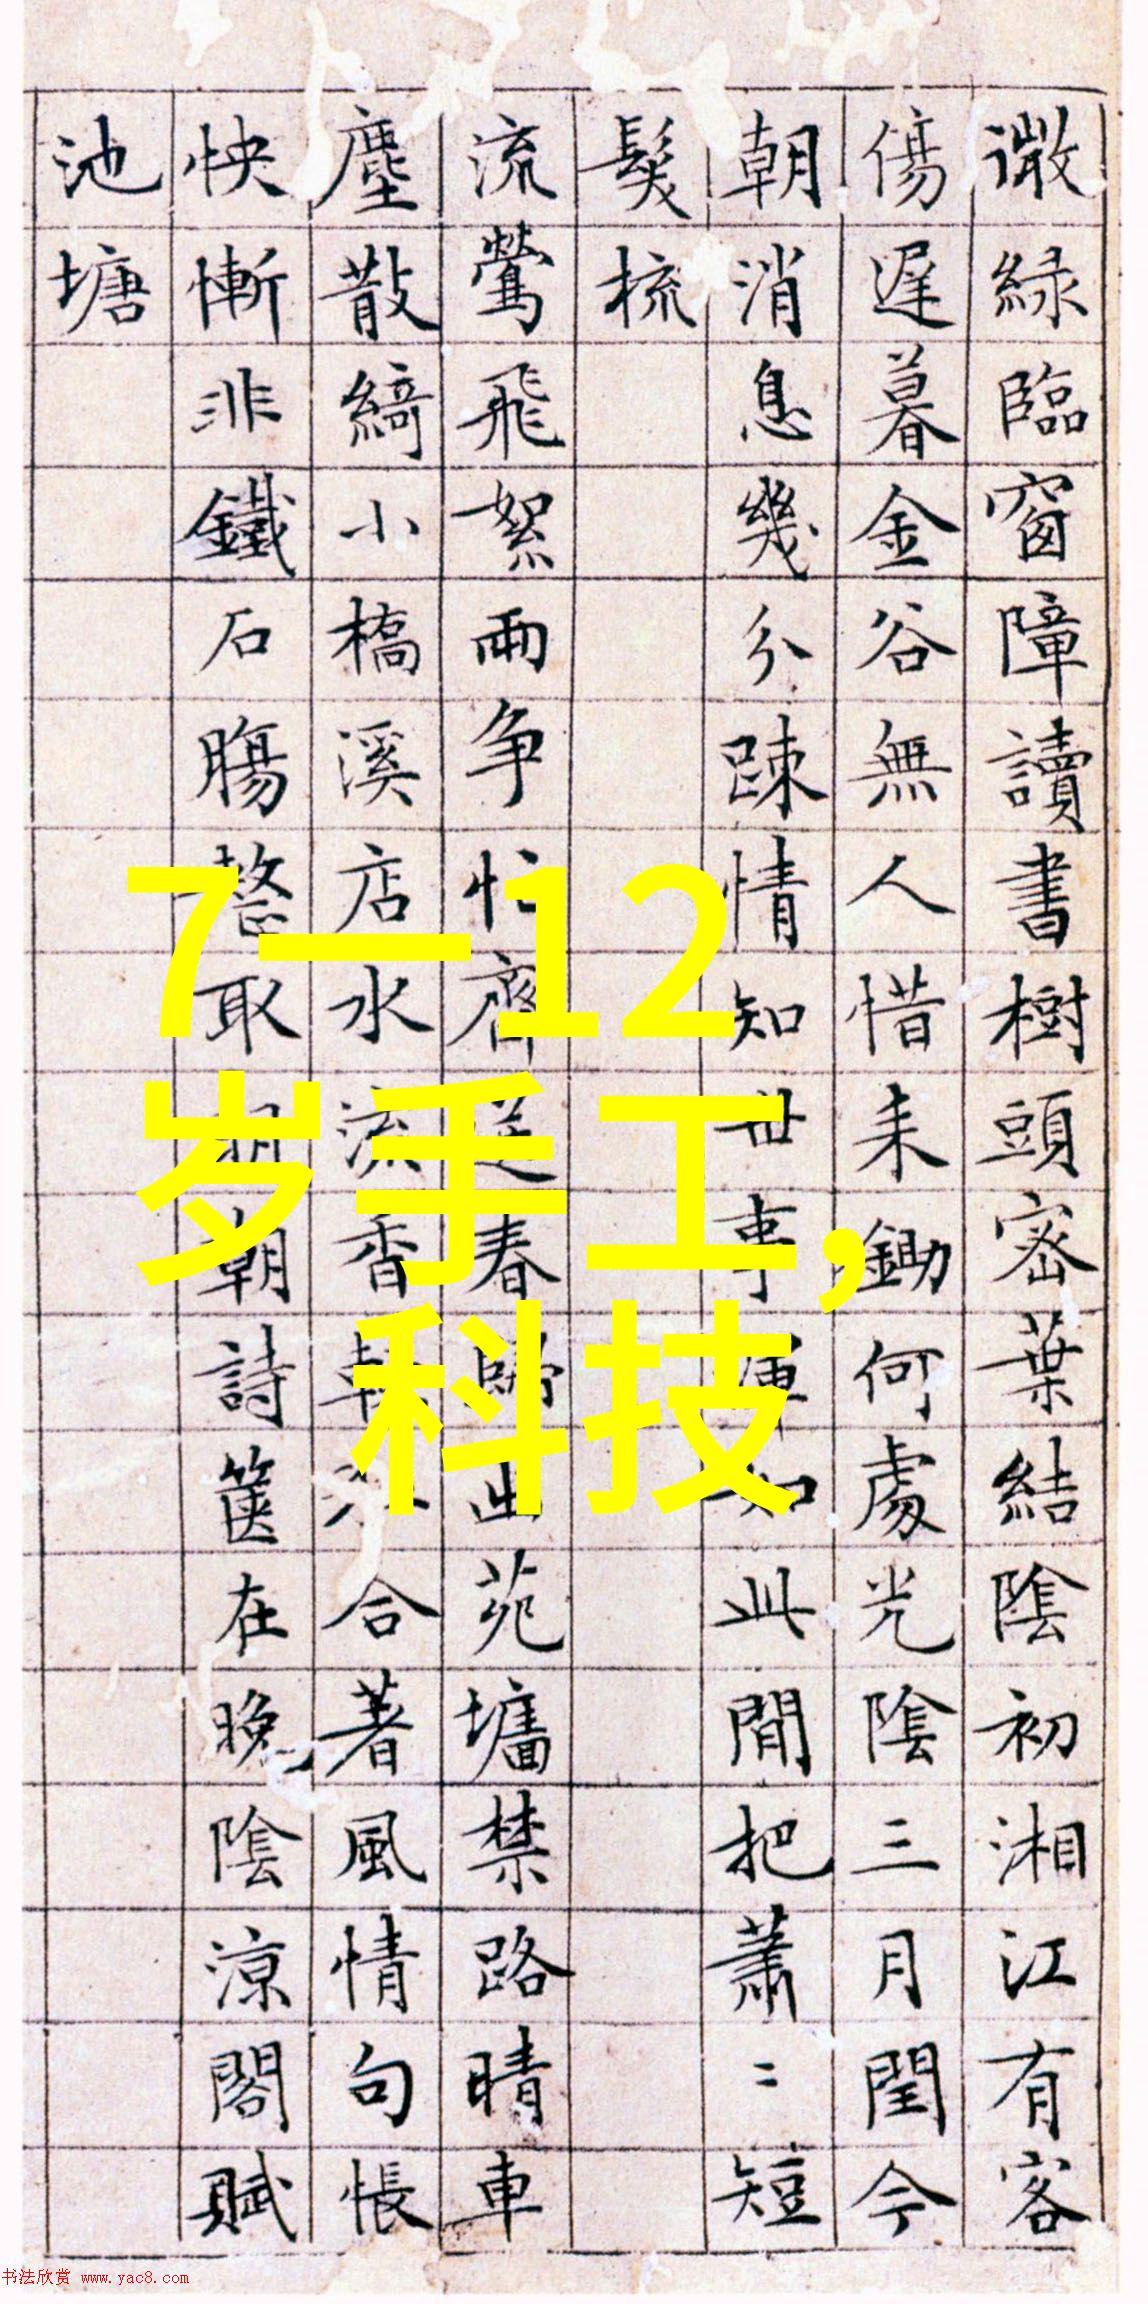 微綠臨窗障讀書樹頭密葉結陰初湘江有客
傷遲暮金谷無人惜未鋤何處光陰三月閏今
朝消息幾分踈情知世事渾如此閒把蕭〻短
鬓梳
流鶯飛絮兩争忙齊送春歸出苑墻禁路晴車
塵散綺小橋溪店水流香合著風情句悵
怏慚非鐵石腸整取朝詩篋在晚陰涼閣賦
池塘
7一12
岁手工,
科技
书法欣赏 www.yac8.com